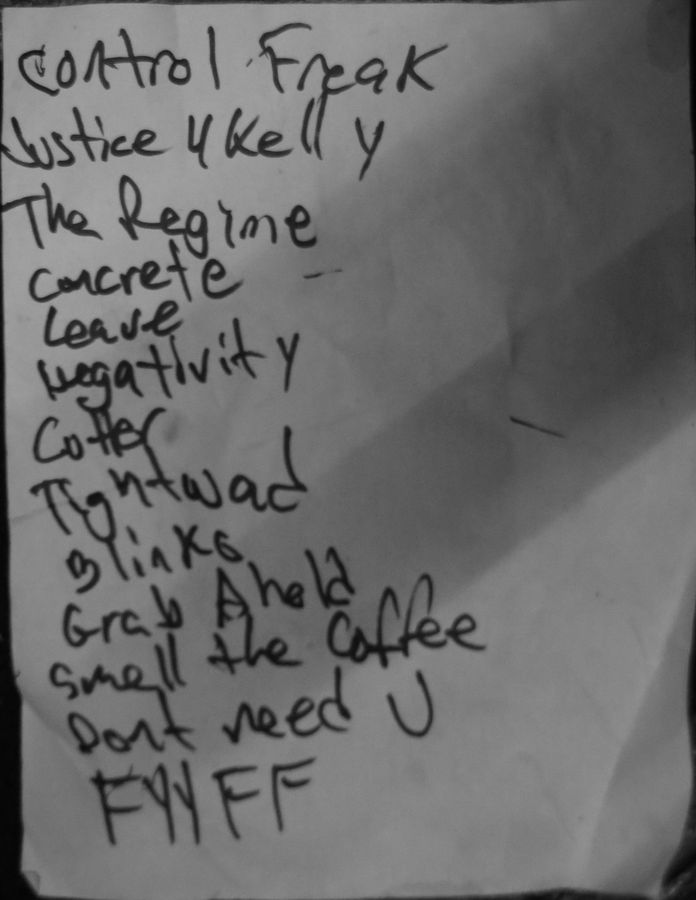 Control Freak
Justice 4 Kelly
The Regime
Concrete
Leave
Negativity
Cotter
Tightwad
Blinks
Grab Ahold
Smell the Coffee
Dont need U
FYYFF